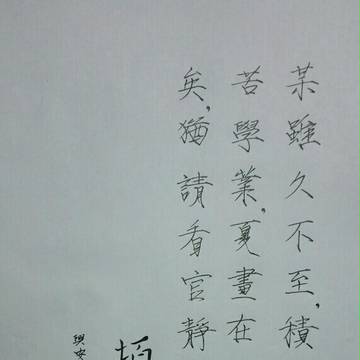 某雖久不至,積
苦學業,夏畫在
矣,猶請看官靜